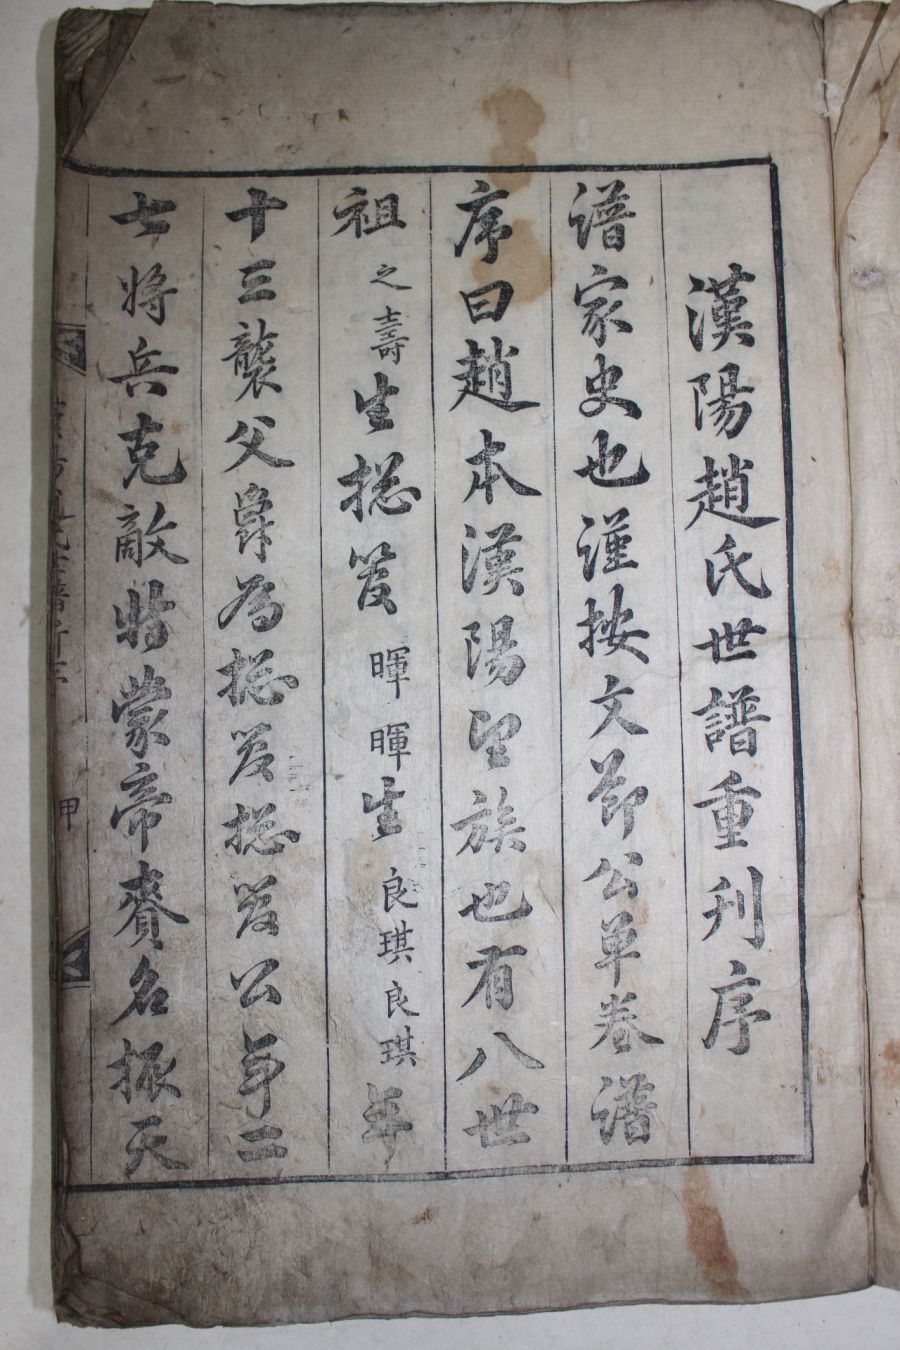 漢陽趙氏世譜重刊序
譜家史也謹按文節公單卷譜
序曰趙本漢陽望族也有八世
祖之壽生摠管暉暉生良琪良琪年
十三襲父爵為摠管摠管公年二
七將兵克敵特蒙帝賚名振天
甲